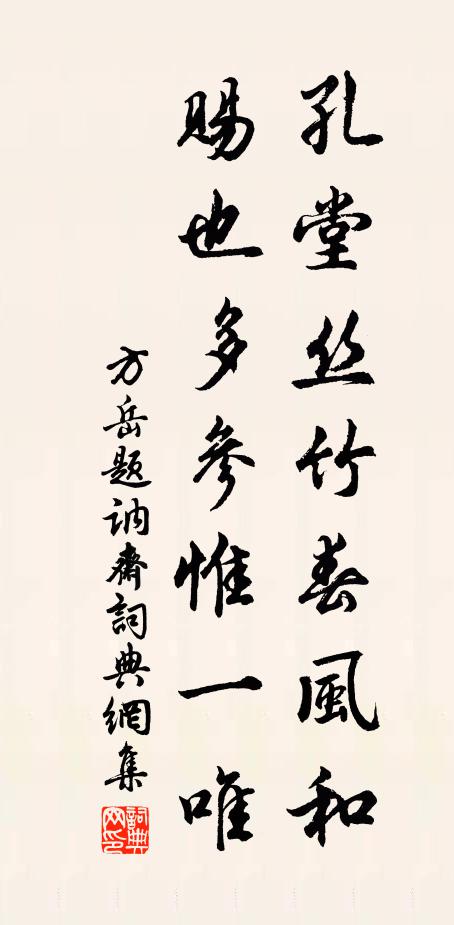 孔堂丝竹春風和
賜也多参惟一唯
方岳题讷齋詞典網集
詞典網印